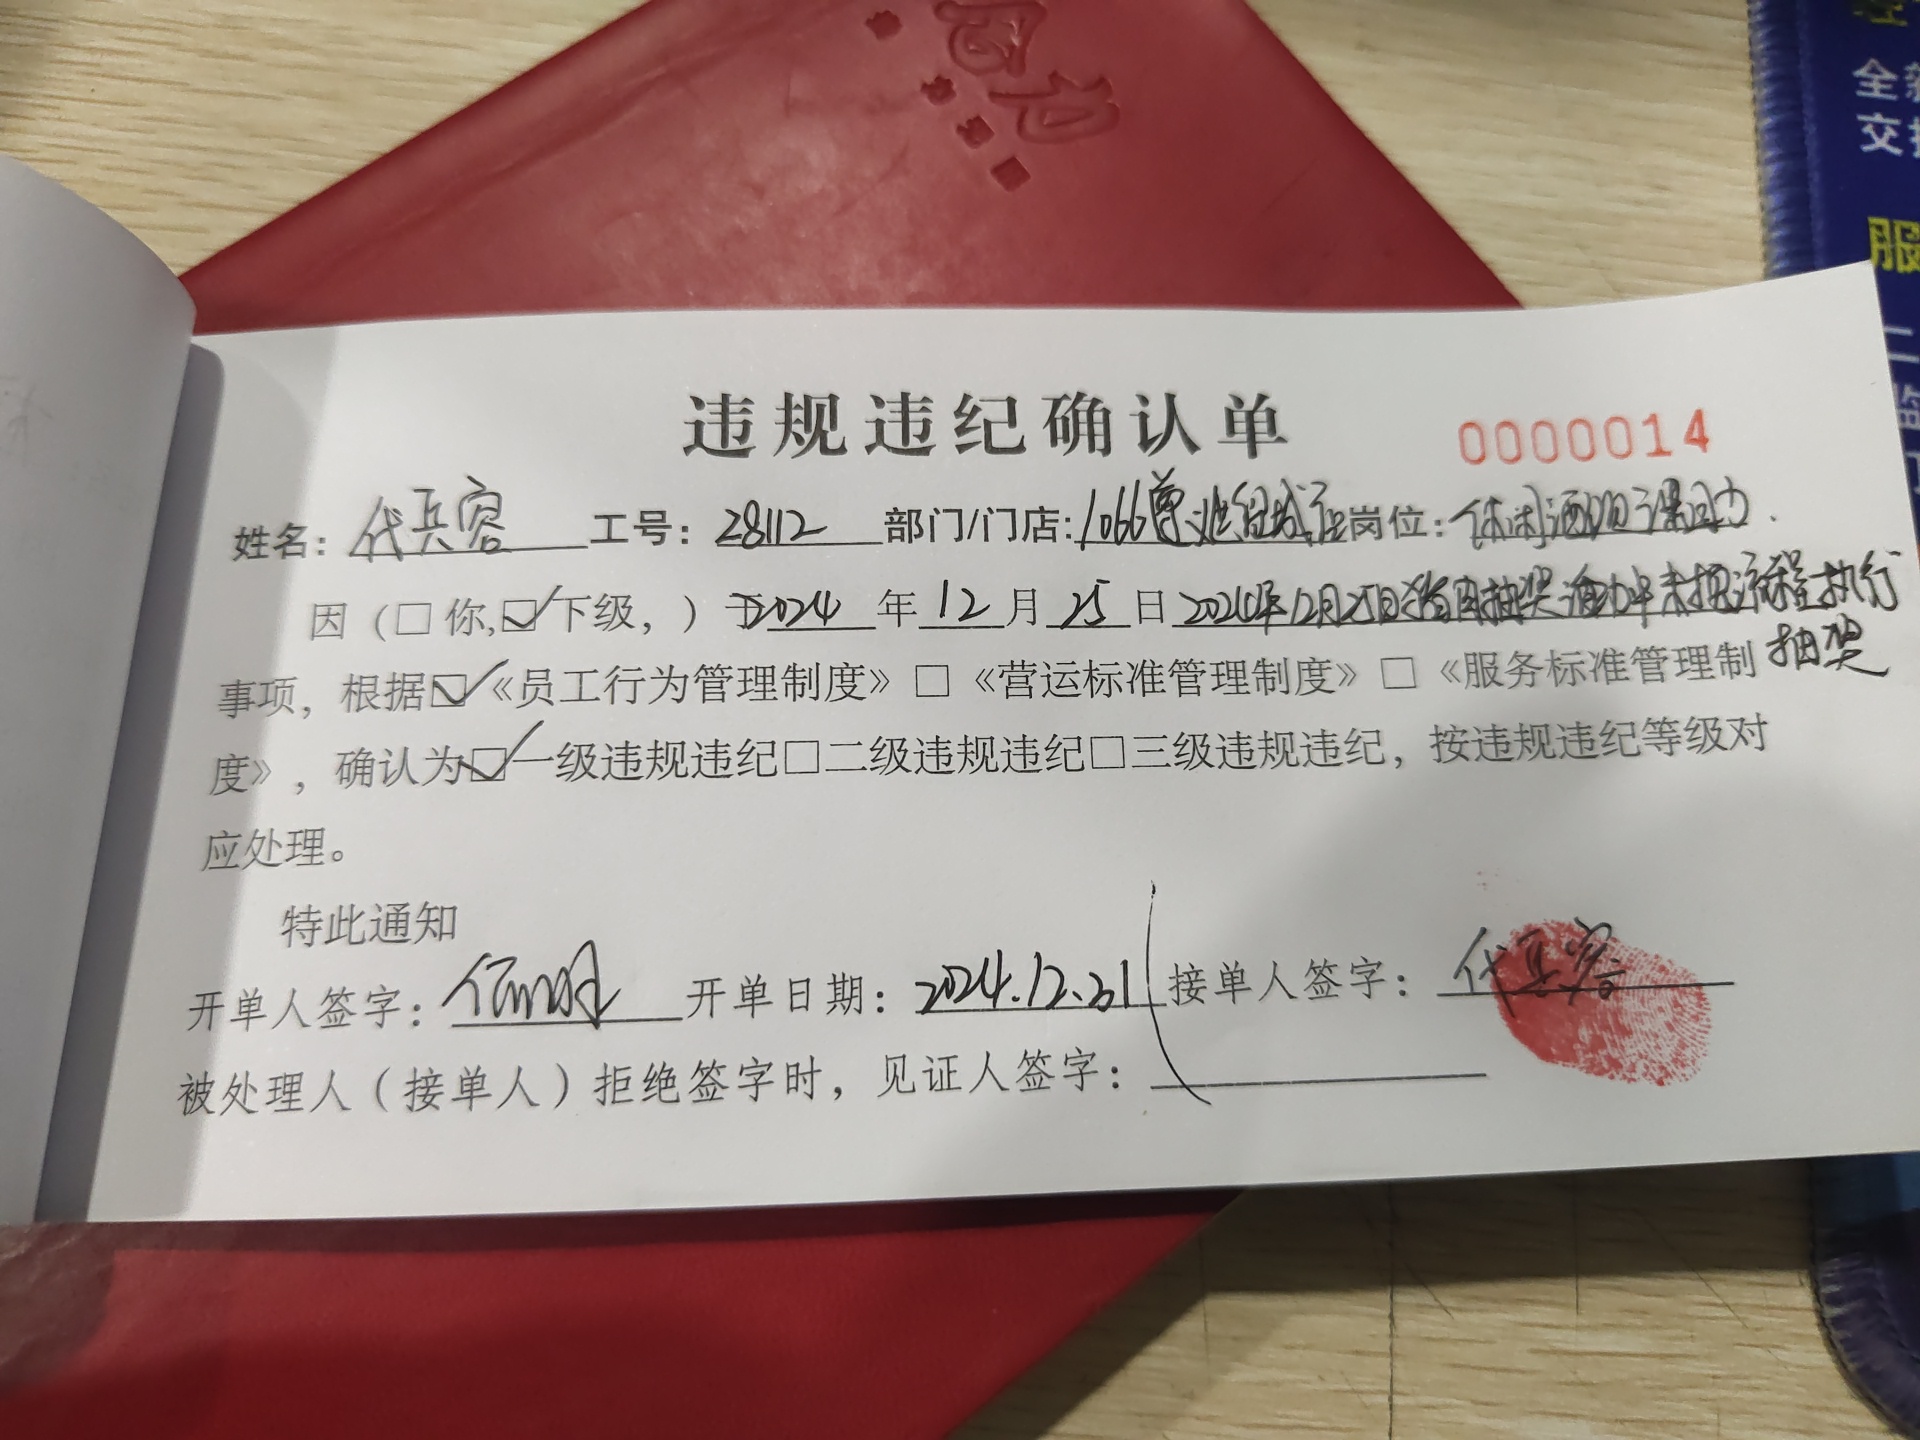 违规违纪确认单 0000014
姓名：代兵容 工号：28112 部门/门店：1066 岗位：休闲酒饮课助
因（□你,☑下级，）于2024年12月25日2024年12月25日 抽奖活动中未按流程执行
抽奖
事项，根据☑《员工行为管理制度》□《营运标准管理制度》□《服务标准管理制
度》，确认为☑一级违规违纪□二级违规违纪□三级违规违纪，按违规违纪等级对
应处理。
特此通知
开单人签字： 开单日期：2024.12.31 接单人签字：代兵容
被处理人（接单人）拒绝签字时，见证人签字：
全新
交换
服
二
监